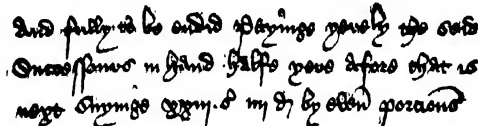 And fully to be endid Payinge yerely the seide
Successours in hand halfe yere afore that is
next suyinge xxiii s iiii d by even porcions